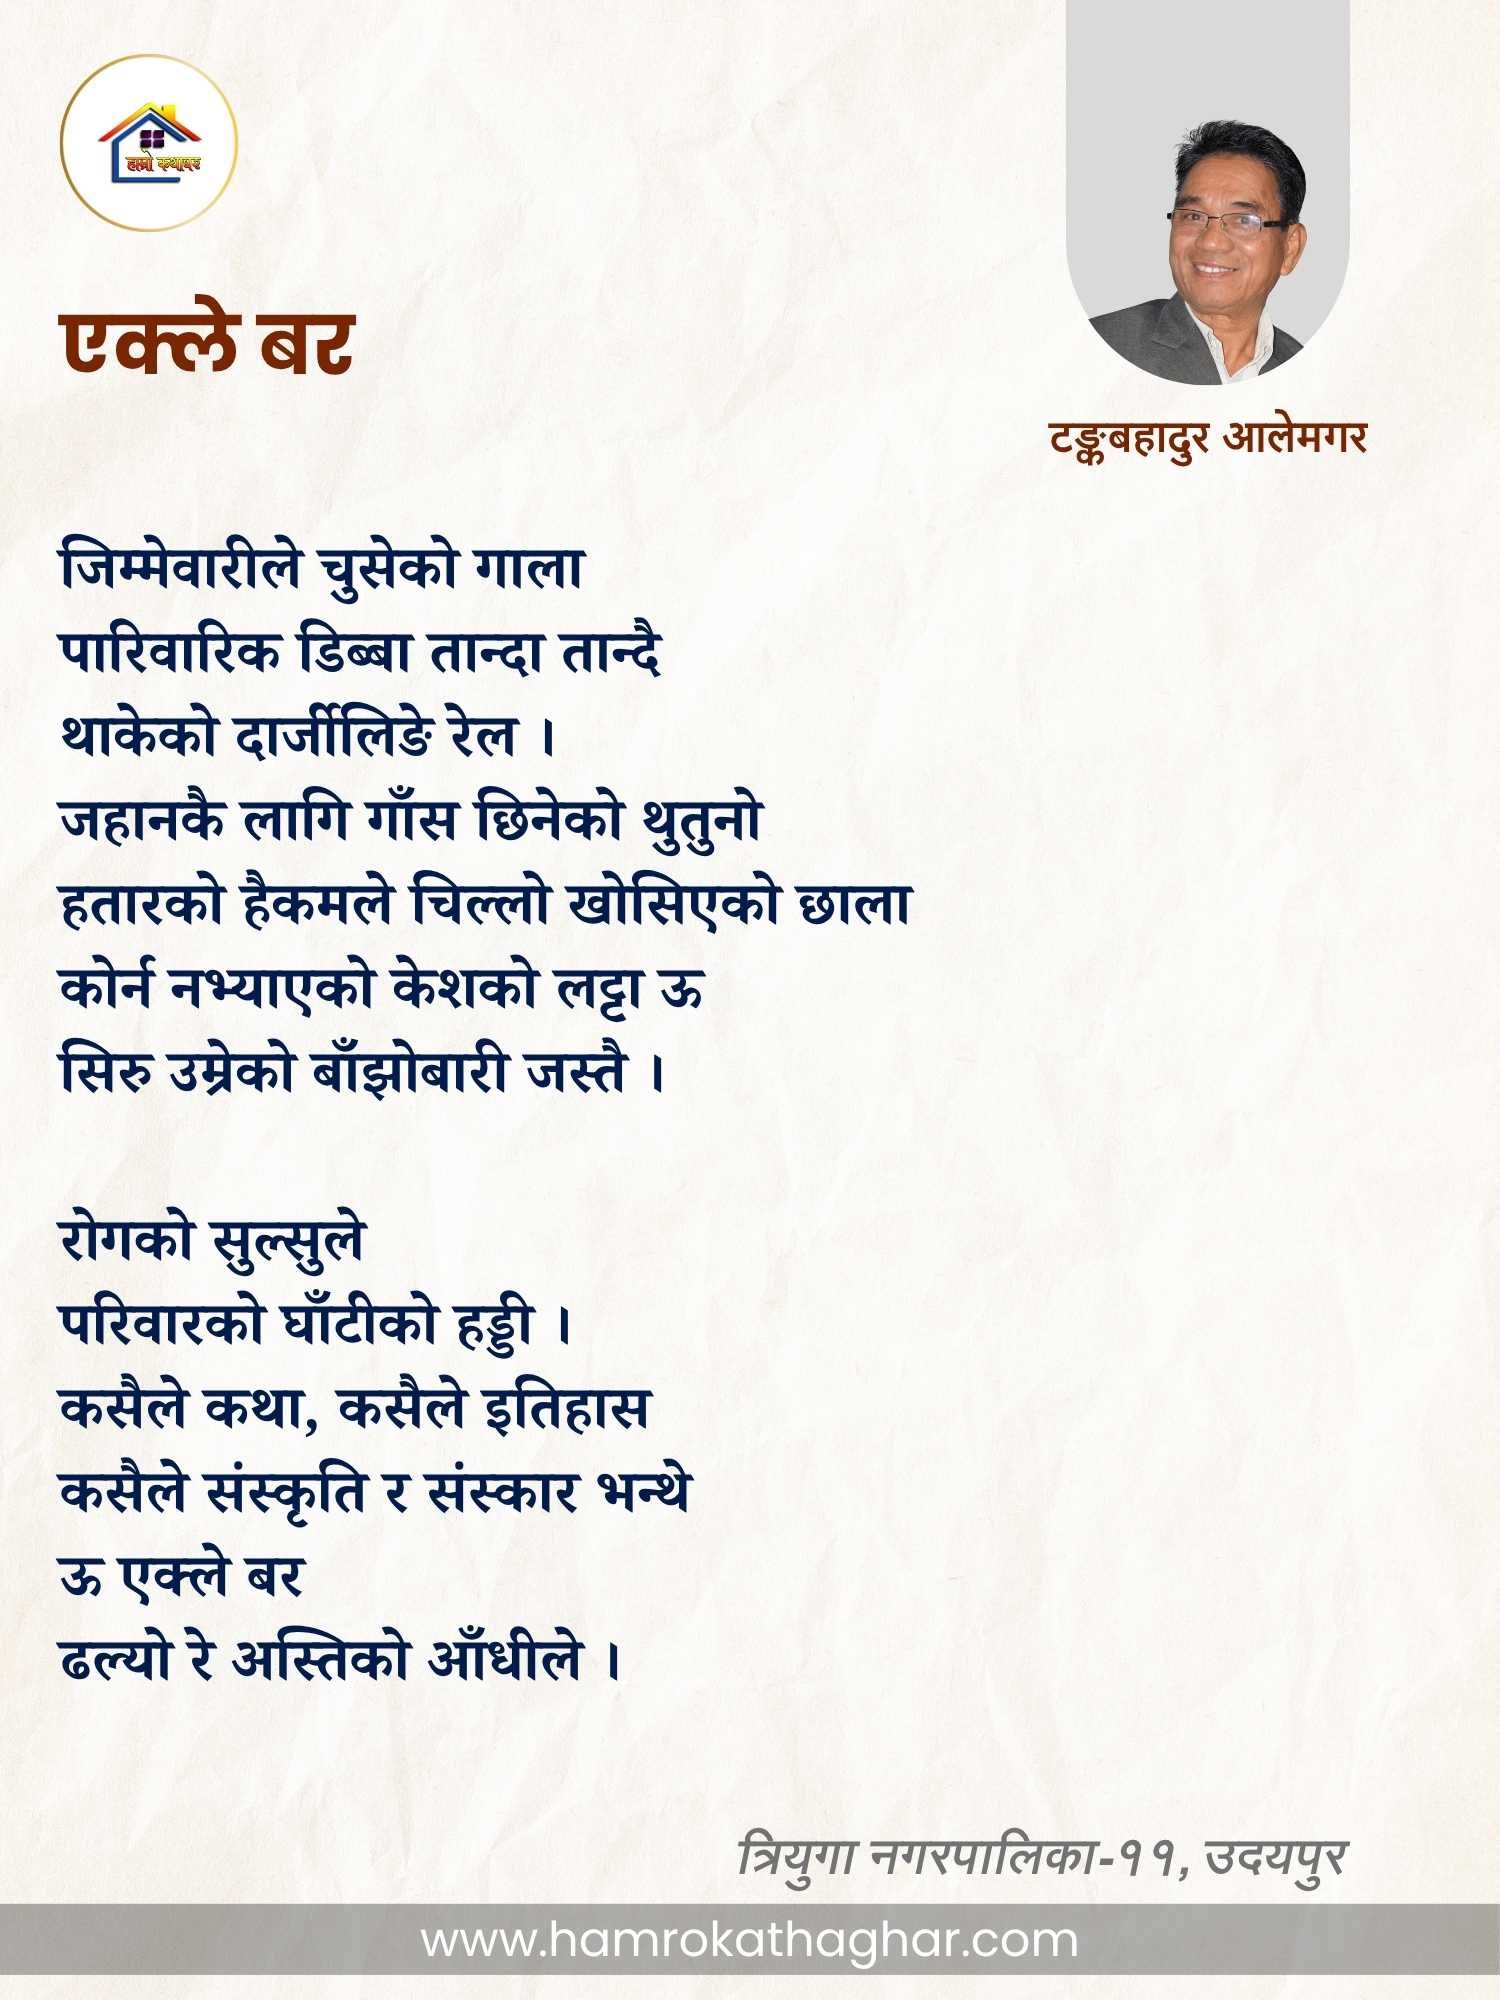 हाम्रो कथाघर
एक्ले बर
टङ्कबहादुर आलेमगर
जिम्मेवारीले चुसेको गाला
पारिवारिक डिब्बा तान्दा तान्दै
थाकेको दार्जीलिङे रेल ।
जहानकै लागि गाँस छिनेको थुतुनो
हतारको हैकमले चिल्लो खोसिएको छाला
कोर्न नभ्याएको केशको लट्टा ऊ
सिरु उम्रेको बाँझोबारी जस्तै ।
रोगको सुल्सुले
परिवारको घाँटीको हड्डी ।
कसैले कथा, कसैले इतिहास
कसैले संस्कृति र संस्कार भन्थे
ऊ एक्ले बर
ढल्यो रे अस्तिको आँधीले ।
त्रियुगा नगरपालिका-११, उदयपुर
www.hamrokathaghar.com